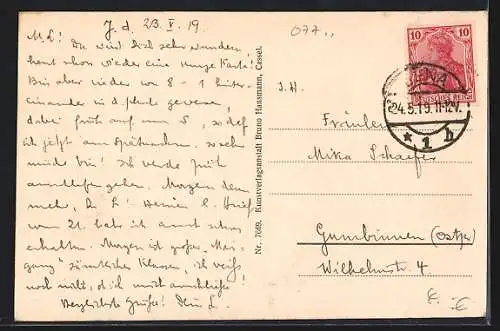 J. d. 23. V. 19.
M. L.! Du wirst Dich sehr wundern,
heut schon wieder eine Karte!
Bin aber wieder von 8 - 1 hinter-
einander in d. Schule gewesen,
dabei früh auf um 5, so daß
ich jetzt am Spätnachm. so sehr
müde bin! Ich werde früh
schlafen gehen. Morgen dann
mehr, D. L.! Deinen l. Brief
vom 21. habe ich auch schon
erhalten. Morgen ist großer „Mai-
gang" sämtlicher Klassen, ich weiß
noch nicht, ob ich mich anschließe!
Herzlichste Grüße! Dein L.
Nr. 7689. Kunstverlagsanstalt Bruno Hansmann, Cassel.
077
10 10
DEUTSCHES REICH
JENA
24.5.19. 11-12V.
* 1 b
I. H.
Fräulein
Mika Schaefer
Gumbinnen (Ostpr)
Wilhelmstr. 4